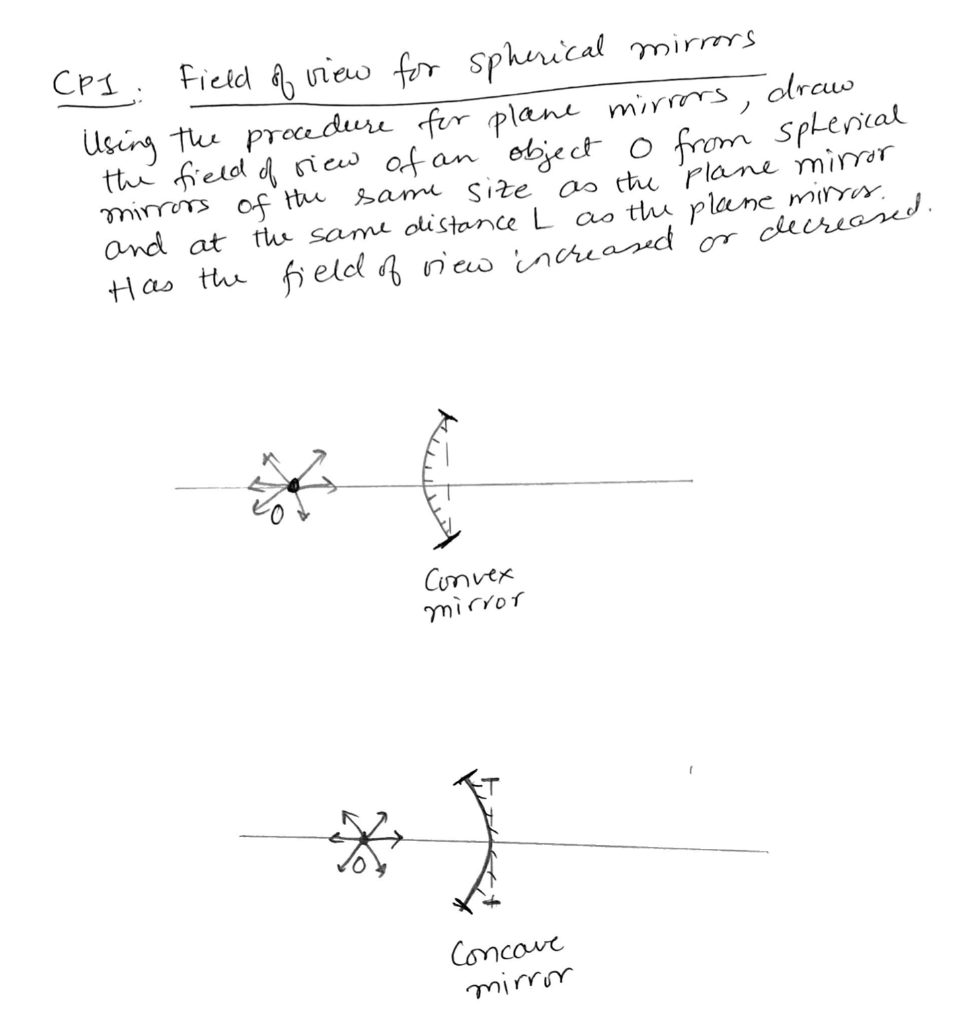 CP1: Field of view for spherical mirrors
Using the procedure for plane mirrors, draw
the field of view of an object O from spherical
mirrors of the same size as the plane mirror
and at the same distance L as the plane mirror.
Has the field of view increased or decreased.
O
Convex
mirror
O
Concave
mirror